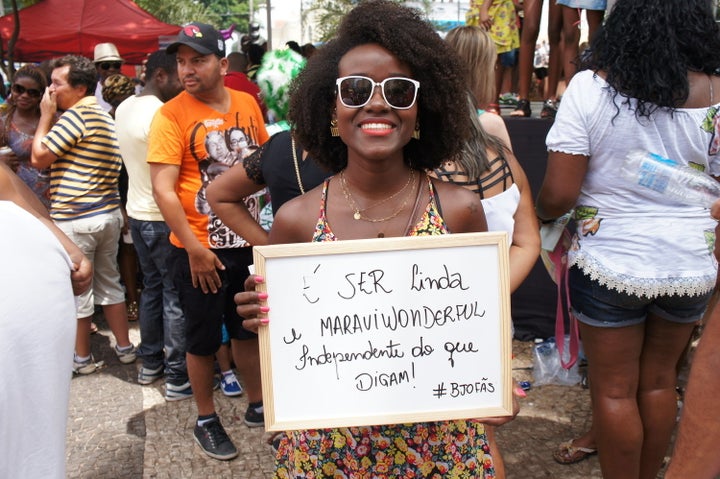 É SER Linda
e MARAVIWONDERFUL
Independente do que
DIGAM! #BJOFÃS